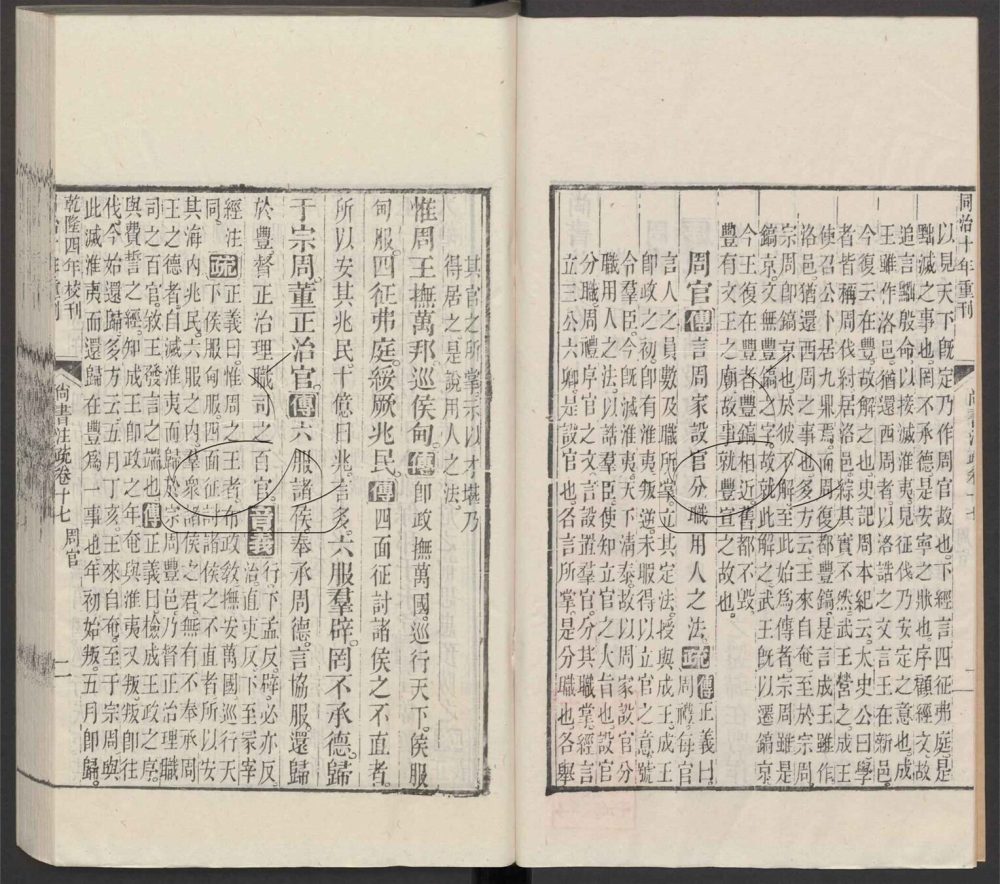 同治十年重刊
以見天下既定乃作周官故也下經言四征弗庭是
黜滅之事也罔不承德是安寧之狀也序顧經文故
追言黜殷命以接滅淮夷見征伐乃安定之意也成
王雖作洛邑猶還西周者以洛誥之文言王在新邑
今復云在豐故解之也史記周本紀云太史公曰學
者皆稱周伐紂居洛邑綜其實不然武王營之成王
使召公卜居九鼎焉而周復都豐鎬是言成王雖作
洛邑猶還西周之事也多方云王來自奄至於宗周
宗周即鎬京也於彼不解至此始爲傳者宗周雖是
鎬京文無豐鎬之字故就此解之武王既以遷鎬京
今王復在豐者豐鎬相近舊都不毀
豐有文王之廟故事就豐宣之故也
周官傳言周家設官分職用人之法疏傳正義曰
周禮每官
言人之員數及職所掌立其定法授與成王成王
即政之初即有淮夷叛逆未暇得以立官之意號
令羣臣今既滅淮夷天下清泰故以周家設官分
職用人之法誥羣臣使知立官之大旨也設官
分職周禮序官之文言設置羣官分其職掌經言
立三公六卿是設官也各言所掌是分其職也各舉
其官之所掌示以才堪乃
得居之是說用人之法
惟周王撫萬邦巡侯甸傳即政撫萬國巡行天下侯服
甸服四征弗庭綏厥兆民傳四面征討諸侯之不直者
所以安其兆民十億曰兆言多六服羣辟罔不承德歸
于宗周董正治官傳六服諸侯奉承周德言協服還歸
於豐督正治理職司之百官音義行下孟反辟必亦反
治直吏反下下至冢宰
經注同疏正義曰惟周之王者布政教撫安萬國巡行天
下侯服甸服四面征討諸侯之不直者所以安
其海內兆民六服之內羣衆諸侯之君無有不奉承周
王之德者自滅淮夷而歸於宗周豐邑乃督正治理職
司之百官敘王發言之端也傳正義曰檢成王政之序
與費誓之經知成王即政之年奄與淮夷又叛叛即往
伐今始還歸多方云五月丁亥王來自奄至于宗周與
此滅淮夷而還歸在豐爲一事也年初始叛五月即歸
乾隆四年校刊
尚書注疏卷十七 周官
二